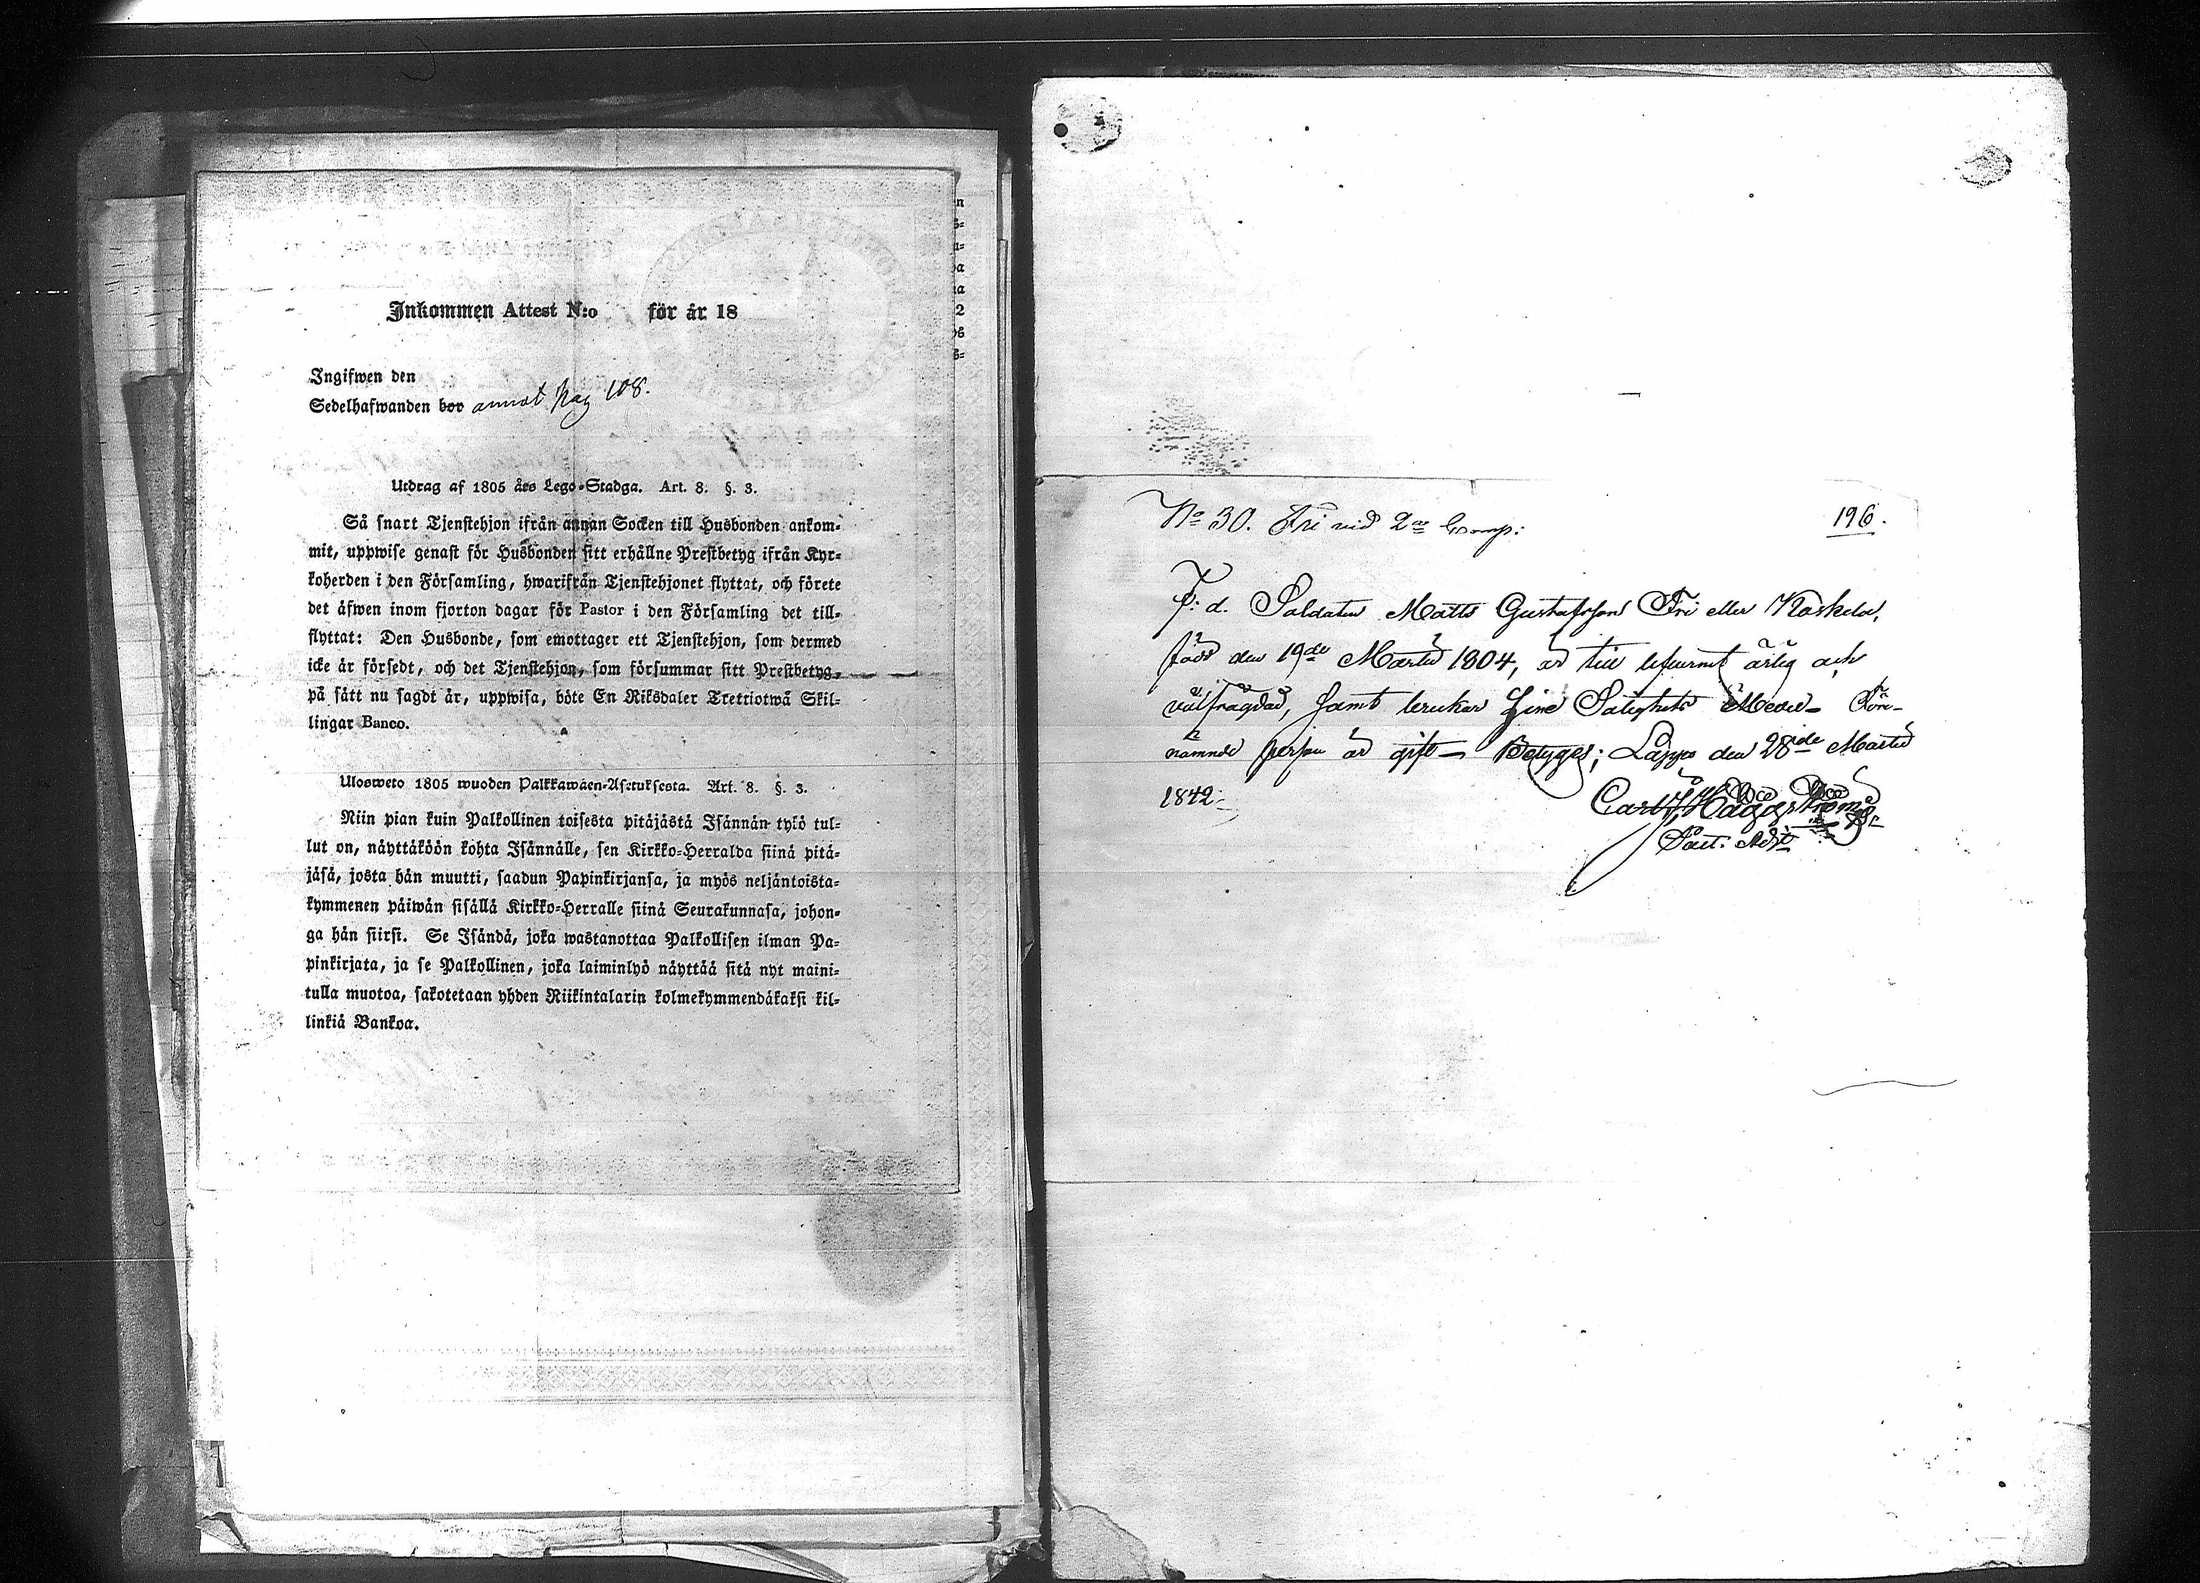 Inkommen Attest N:o för år 18
Ingifwen den
Sedelhafwanden bor annot pag 108.
Utdrag af 1805 års Lego-Stadga. Art. 8. §. 3.
Så snart Tjenstehjon ifrån annan Socken till Husbonden ankom-
mit, uppwise genast för Husbonden sitt erhållne Prestbetyg ifrån Kyr-
koherden i den Församling, hwarifrån Tjenstehjonet flyttat, och förete
det äfwen inom fjorton dagar för Pastor i den Församling det till-
flyttat: Den Husbonde, som emottager ett Tjenstehjon, som dermed
icke är försedt, och det Tjenstehjon, som försummar sitt Prestbetyg,
på sätt nu sagdt är, uppwisa, böte En Riksdaler Trettiotwå Skil-
lingar Banco.
Ulosweto 1805 wuoden Palkkawäen-Asetuksesta. Art. 8. §. 3.
Niin pian kuin Palkollinen toisesta pitäjästä Isännän tykö tul-
lut on, näyttäköön kohta Isännälle, sen Kirkko-Herralda siinä pitä-
jäsä, josta hän muutti, saadun Papinkirjansa, ja myös neljäntoista-
kymmenen päiwän sisällä Kirkko-Herralle siinä Seurakunnasa, johon-
ga hän siirsi. Se Isändä, joka wastanottaa Palkollisen ilman Pa-
pinkirjata, ja se Palkollinen, joka laiminlyö näyttää sitä nyt maini-
tulla muotoa, sakotetaan yhden Riikintalarin kolmekymmendäkaksi kil-
linkiä Bankoa.
No 30. Fri vid 2ra Comp: 196.
F: d. Soldaten Matts Gustafsson Fri eller Koskela,
född den 19de Martii 1804, är till lefvernet ärlig och
välfrägdad, samt brukar Sine Salighets Medel- Före-
namnde person är gift - Betygas; Lappo den 28de Martii
1842.
Carl J. Häggström
Past. Adj.